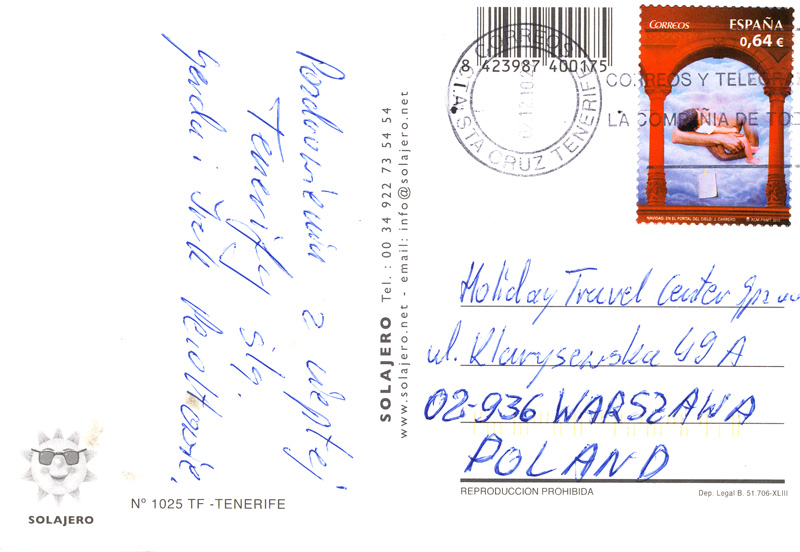 Pozdrowienia z ciepłej
Teneryfy ślą
Gerda i Irek
8 423987 400175
CORREOS
STA CRUZ TENERIFE
CORREOS Y TELEGRA
LA COMPAÑIA DE TOD
CORREOS
ESPAÑA
0,64 €
NAVIDAD. EN EL PORTAL DEL CIELO. J. CARRERO
SOLAJERO Tel.: 00 34 922 73 54 54
www.solajero.net - email: info@solajero.net
Holiday Travel Center Sp z oo
ul. Klarysewska 49 A
02-936 WARSZAWA
POLAND
REPRODUCCION PROHIBIDA
Dep. Legal B. 51.706-XLIII
SOLAJERO
Nº 1025 TF -TENERIFE